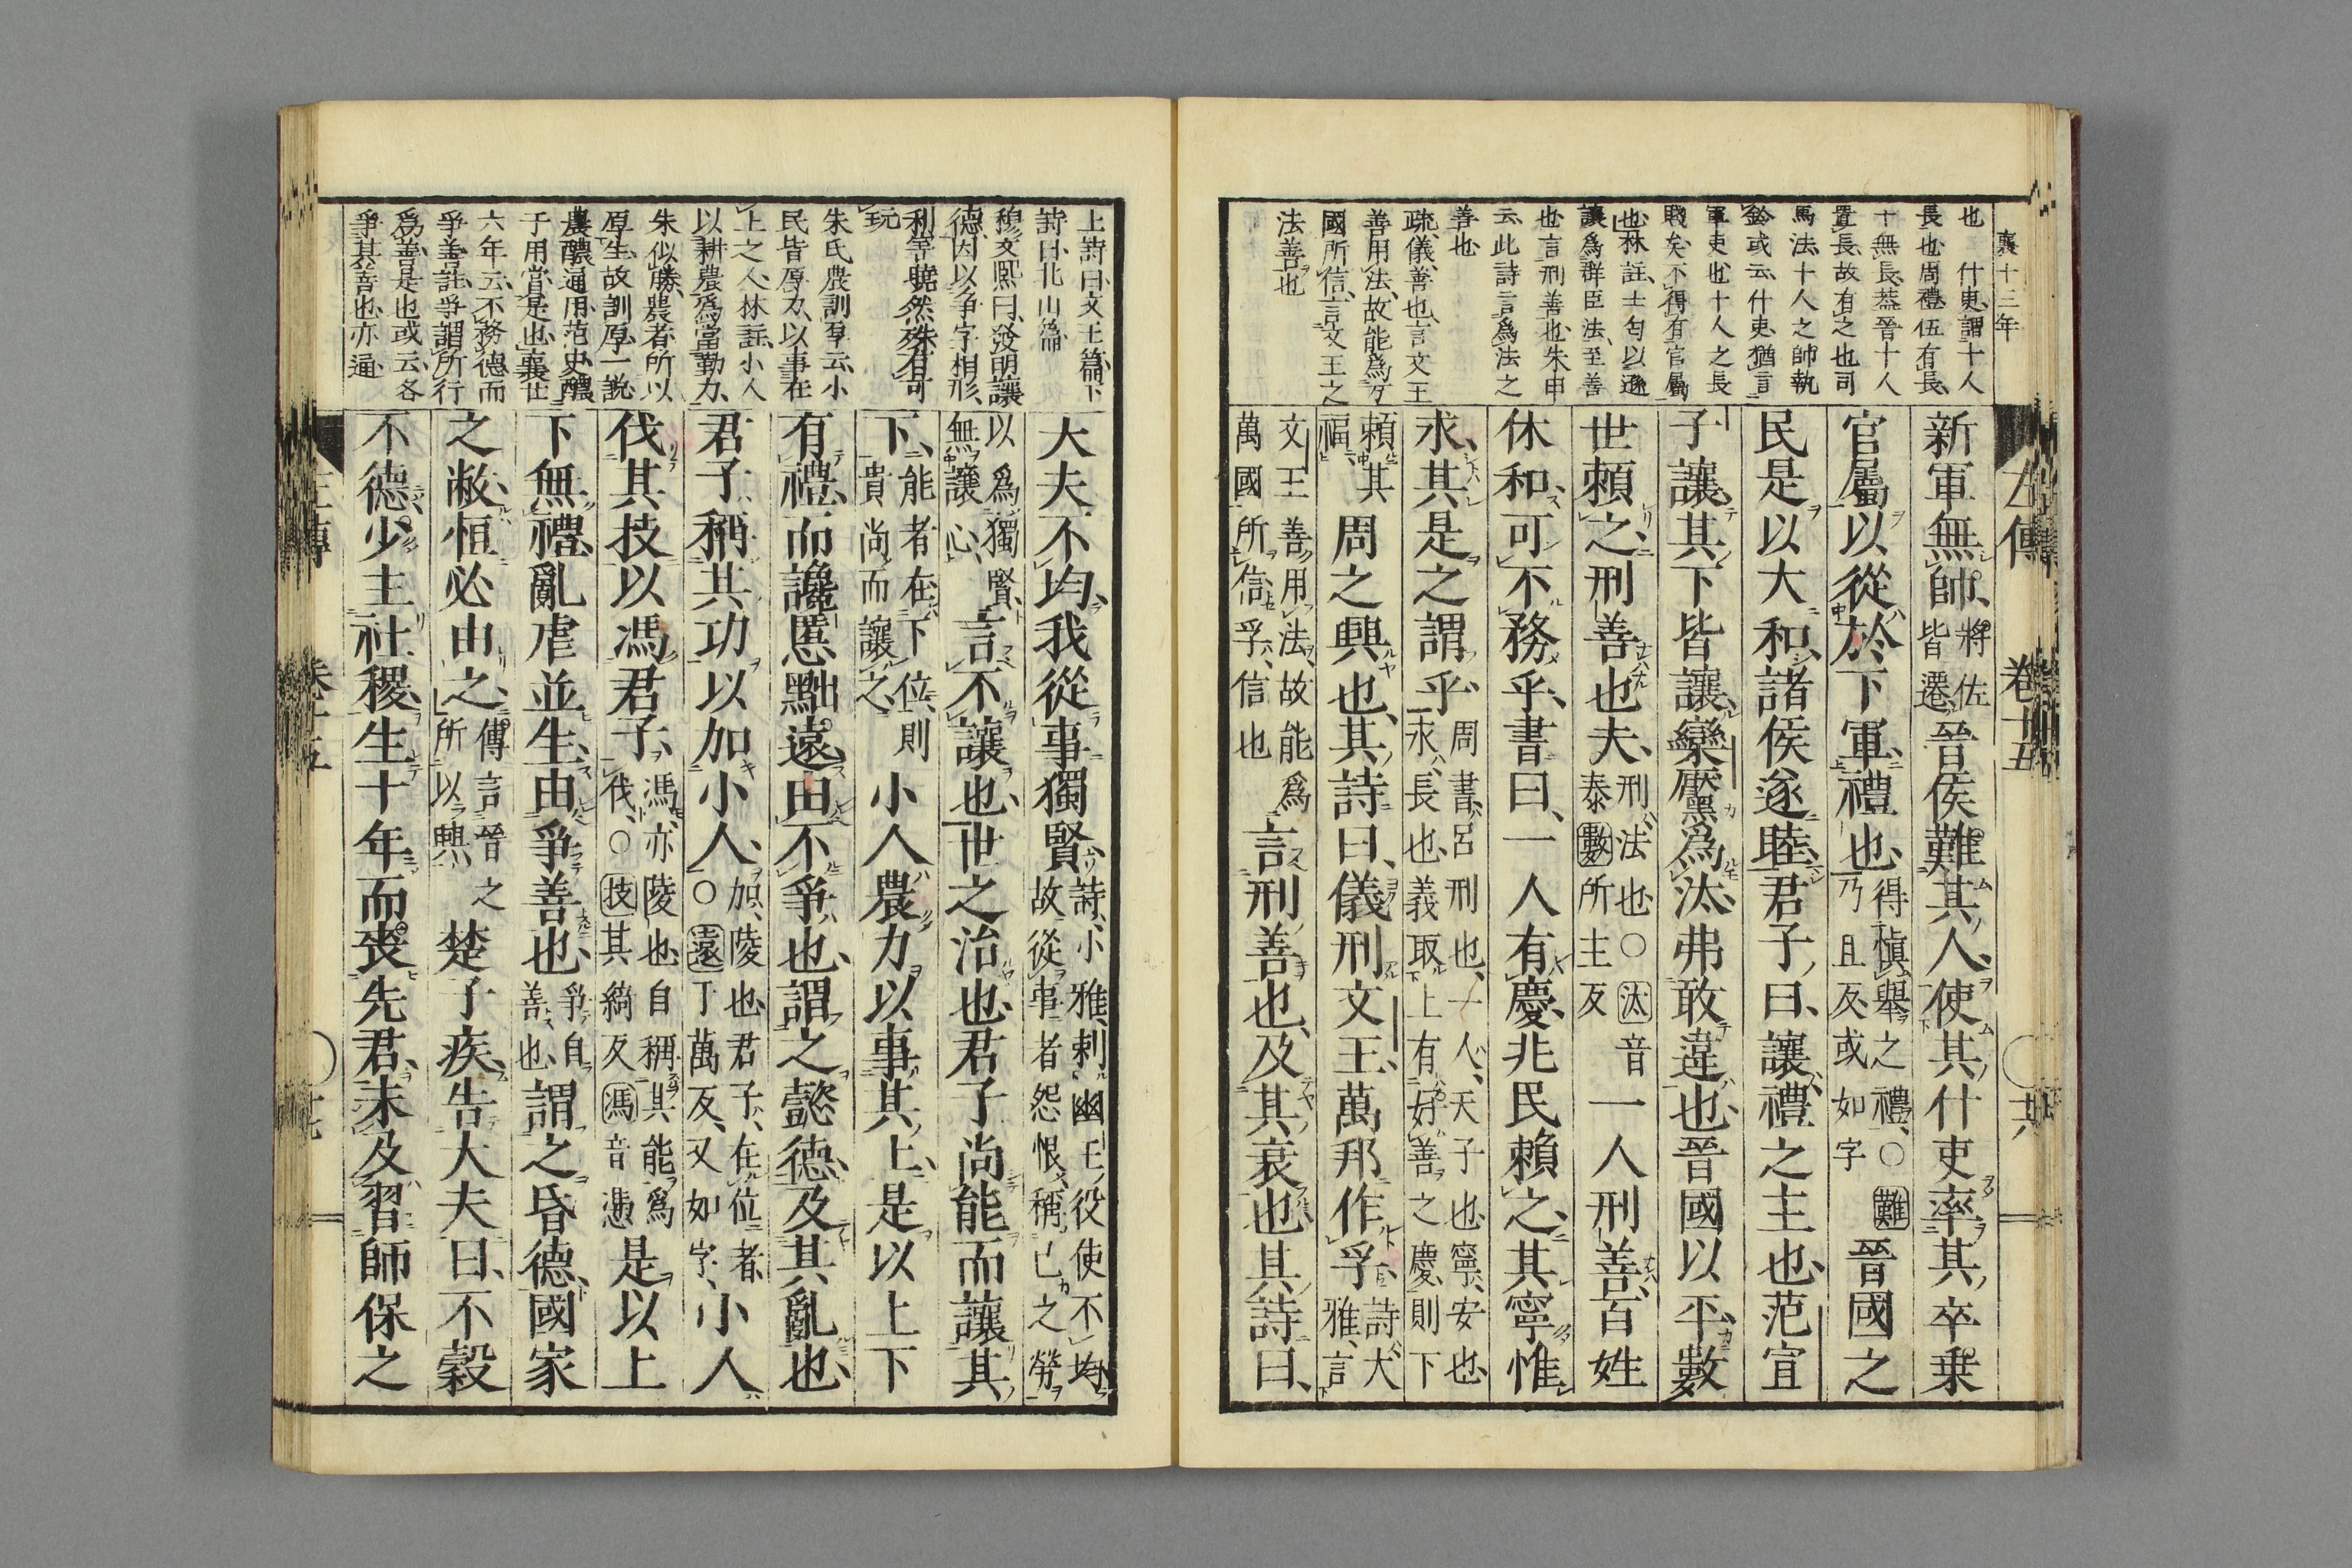 襄十三年
也 什吏謂十人
長也周禮伍有長
十無長蓋晉十人
置長故有之也司
馬法十人之帥執
鈴或云什吏猶言
軍吏也十人之長
賤矣不得有官屬
也林註士匄以遜
讓爲群臣法至善
也言刑善也朱申
云此詩言爲法之
善也
疏儀善也言文王
善用法故能爲万
國所信言文王之
法善也
左傳 卷十五 ○ 十六
新軍無帥、將佐皆遷、晉侯難其人、使其什吏率其卒乗
官屬以從於下軍、禮也、得愼舉之禮、○難乃且反或如字 晉國之
民是以大和、諸侯遂睦、君子曰、讓禮之主也、范宣
子讓其下皆讓、欒黶爲汰弗敢違也、晉國以平、數
世賴之、刑善也夫、刑、法也○汰音泰數所主反 一人刑善、百姓
休和、可不務乎、書曰、一人有慶、兆民賴之、其寧惟
永、其是之謂乎、周書、呂刑也、一人、天子也、寧、安也、永、長也、義取上有好善之慶、則下
賴其福、 周之興也、其詩曰、儀刑文王、萬邦作孚、詩、大雅、言
文王善用法、故能爲萬國所信、孚、信也 言刑善也、及其衰也、其詩曰、
上詩曰文王篇下
詩曰北山篇
穆文熙曰發明讓
德因以爭字相形
利害曉然殊有可
玩
朱氏農訓厚云小
民皆厚力以事在
上之人林註小人
以耕農爲當勤力
朱似勝農者所以
厚生故訓厚一說
農醲通用范史醲
于用賞是也襄廿
六年云不務德而
爭善註爭謂所行
爲善是也或云各
爭其善也亦通
大夫不均、我從事獨賢、詩、小雅、刺幽王役使不均、故從事者怨恨、稱己之勞、
以爲獨賢、無讓心、 言不讓也、世之治也、君子尚能而讓其
下、能者在下位、則貴尚而讓之、 小人農力以事其上、是以上下
有禮、而讒慝黜遠、由不爭也、謂之懿德、及其亂也、
君子稱其功以加小人、加、陵也、君子、在位者、○遠丁萬反、又如字、 小人
伐其技以馮君子、馮、亦陵也、自稱其能爲伐、○技其綺反馮音憑 是以上
下無禮、亂虐並生、由爭善也、爭自善也、 謂之昏德、國家
之敝、恒必由之、傳言晉之所以興、 楚子疾、告大夫曰、不穀
不德、少主社稷、生十年而喪先君、未及習師保之